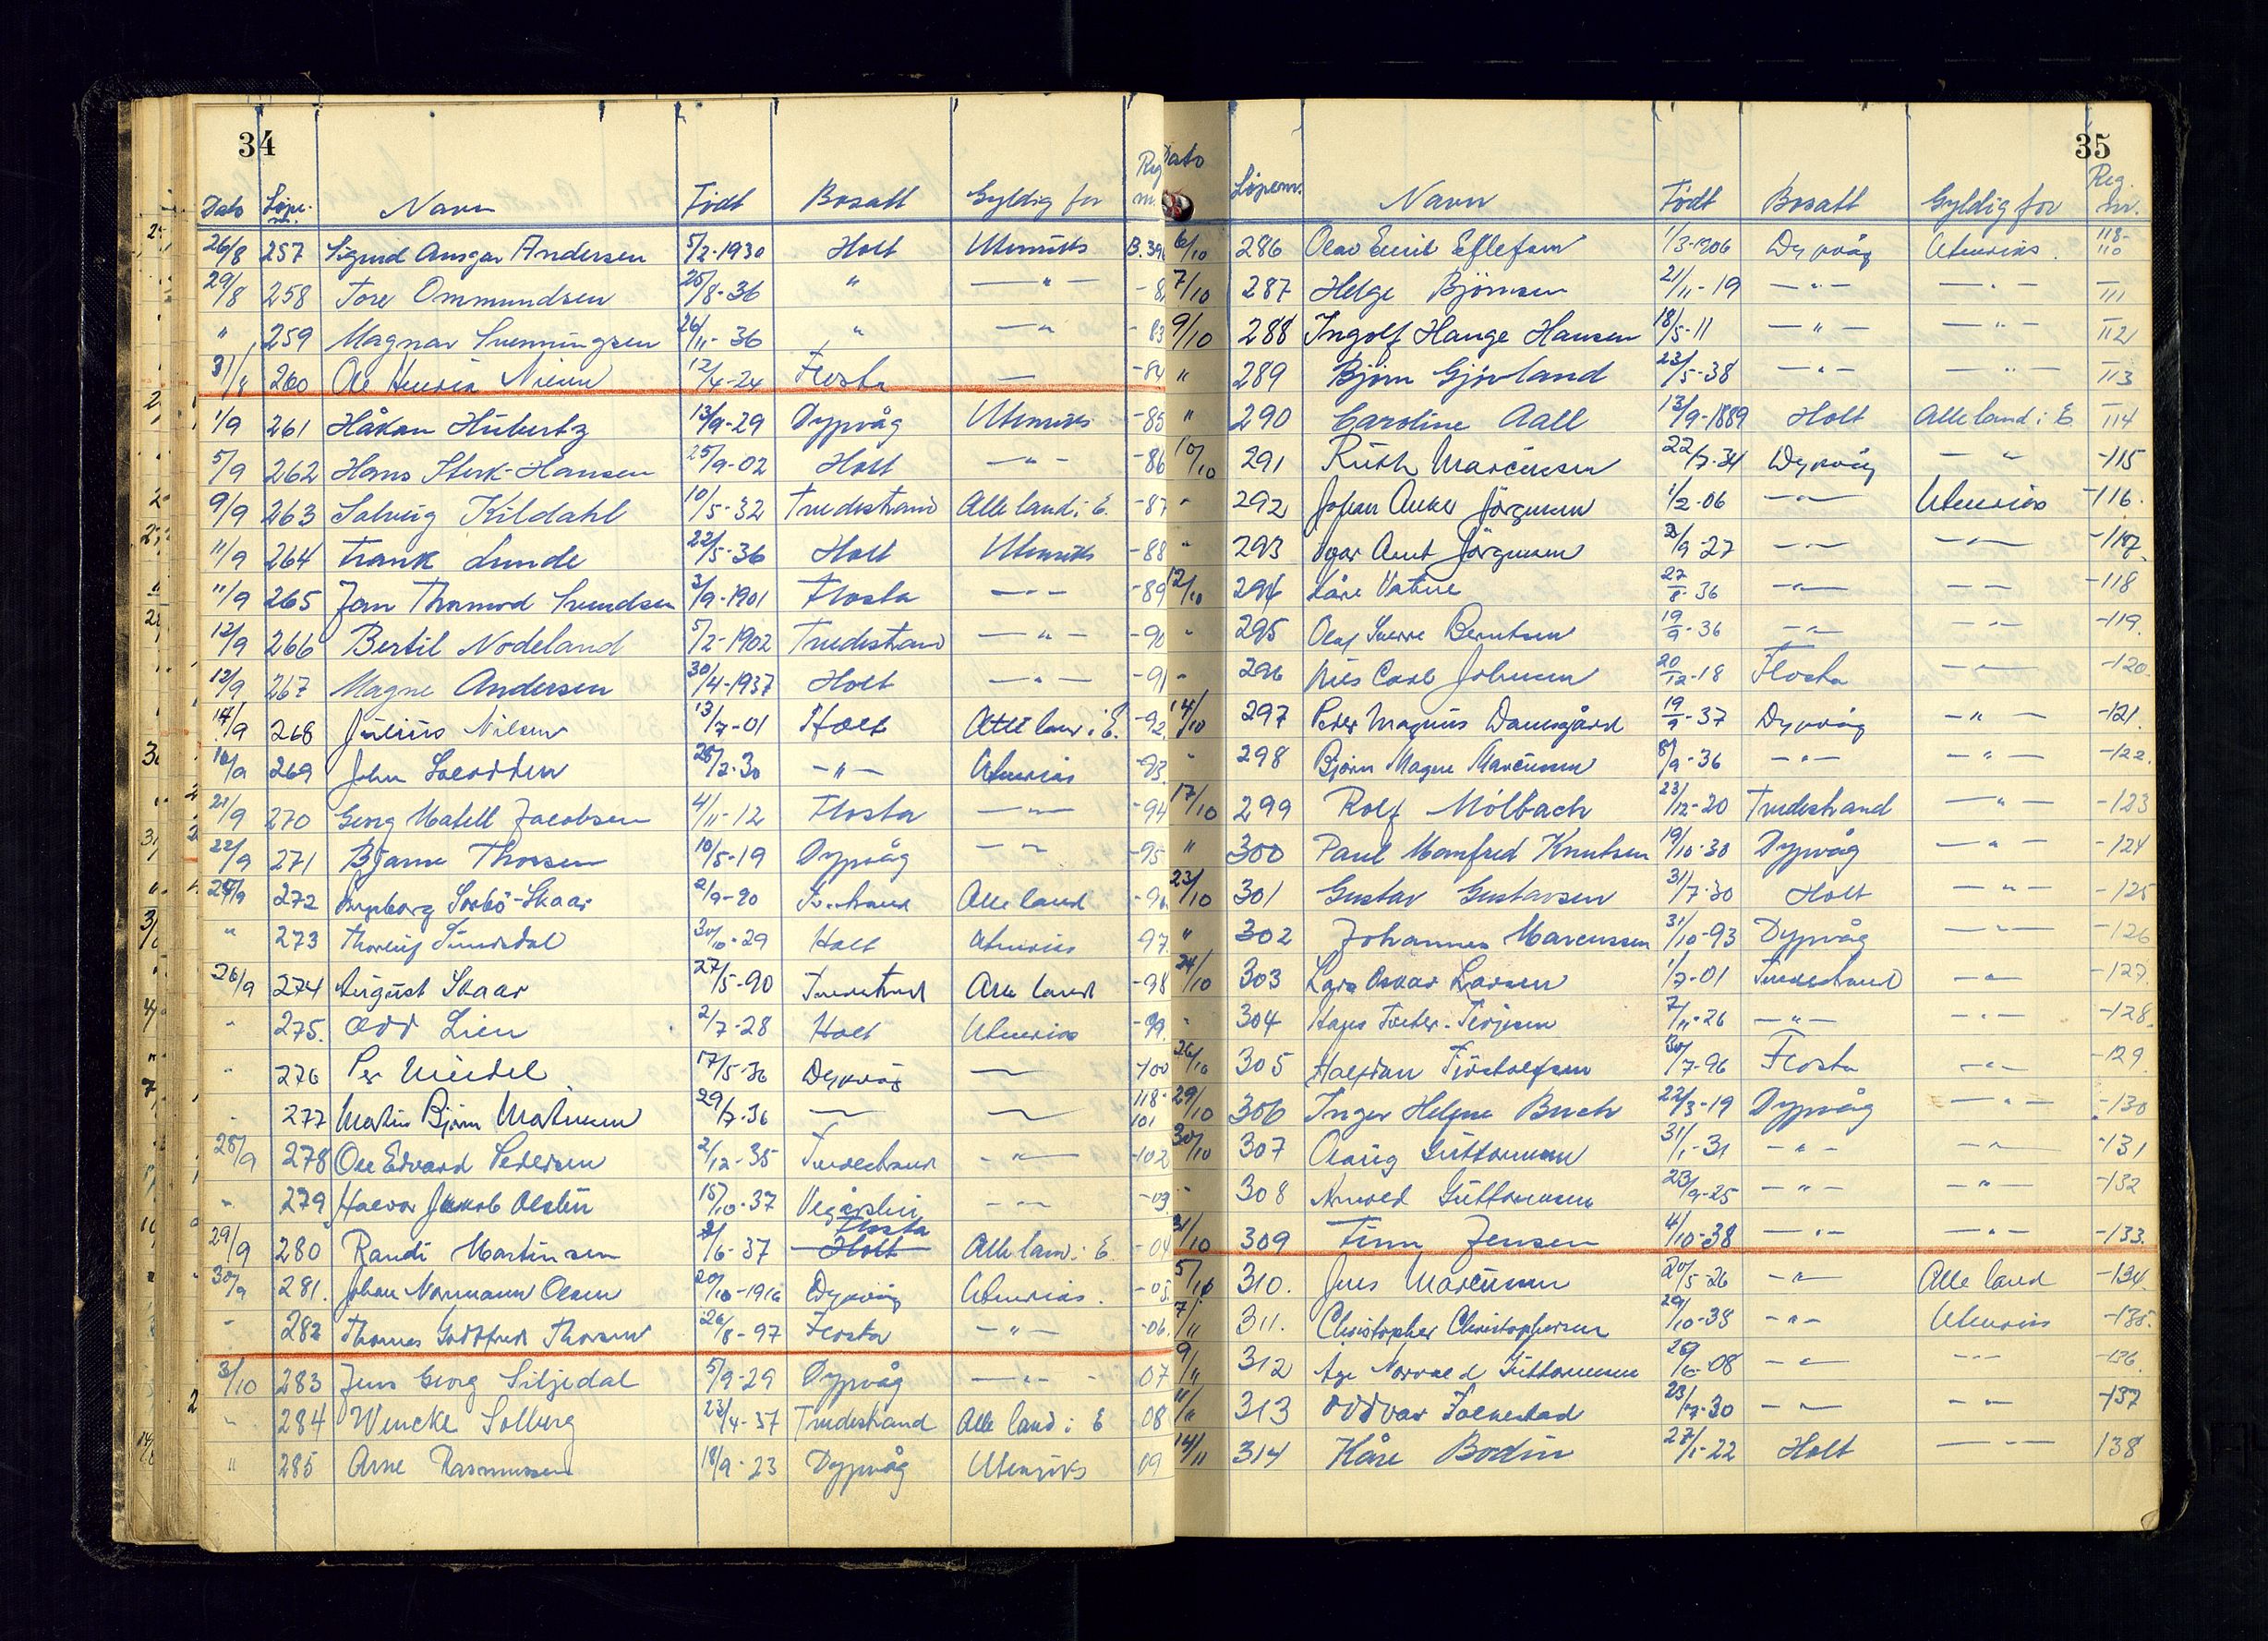 34
Dato Löpe-nr. Navn Födt Bosatt Gyldig for Reg nr.
26/8 257 Sigurd Ansgar Andersen 5/2-1930 Holt Utenriks B.396
29/8 258 Tore Ommundsen 25/8-36 " — " —
" 259 Magnar Svenningsen 26/11-36 " — " - 83
31/8 260 Ole Henrik Nilsen 12/4-24 Flosta — -84
1/9 261 Håkan Hubertz 13/9-29 Dypvåg Utenriks -85
5/9 262 Hans Sterk-Hansen 25/9-02 Holt — " — -86
9/9 263 Solveig Kildahl 10/5-32 Tvedestrand Alle land i E. -87
11/9 264 Frank Lunde 22/5-36 Holt Utenriks -88
11/9 265 Jan Thormod Svendsen 3/9-1901 Flosta — " — -89
12/9 266 Bertil Nodeland 5/2-1902 Tvedestrand — " — -90
12/9 267 Magne Andersen 30/4-1937 Holt — " — -91
14/9 268 Julius Nilsen 13/7-01 Holt Alle land i E. -92
269 John 2-30 — " — Utenriks -93
21/9 270 Georg Matell Jacobsen 4/11-12 Flosta — " — -94
22/9 271 Bjarne Thorsen 10/5-19 Dypvåg — " — -95
24/9 272 Ingeborg Skaar 2/9-90 Tvedestrand Alle land -96
" 273 Thorleif Sundsdal 30/10-29 Holt Utenriks -97
26/9 274 August Skaar 27/5-90 Tvedestrand Alle land -98
" 275. Odd Lien 2/7-28 Holt Utenriks -99.
" 276 Per 17/5-36 Dypvåg — -100
" 277 Martin Björn Martinsen 29/7-36 — — 118-101
28/9 278 Ole Edvard Pedersen 2/12-35 Tvedestrand — " — -102
" 279 Halvor Jakob Olstén 15/10-37 Vegårshei — " — -03.
29/9 280 Randi Martinsen 6-37 Holt Flosta Alle land i E -04
30/9 281. Johan Normann Olsen 20/10-1916 Dypvåg Utenriks. -05.
" 282 Thomas Godtfred Thorsen 26/8-97 Flosta — " — -06.
3/10 283 Jens Georg Siljedal 5/9-29 Dypvåg — " — 07
" 284 Wencke Solberg 23/4-37 Tvedestrand Alle land i E 08
" 285 Arne Rasmussen 18/9-23 Dypvåg Utenriks 09
35
Dato Löpenr. Navn Födt Bosatt Gyldig for Reg. nr.
6/10 286 Olav Emil Ellefsen 1/3-1906 Dypvåg Utenriks. 118-110
7/10 287 Helge Björnsen 21/11-19 — " — — " — 111
9/10 288 Ingolf Hauge Hansen 18/5-11 — " — — " — 112
" 289 Björn Gjövland 23/5-38 — " — — " — 113
" 290 Caroline Aall 13/9-1889 Holt Alle land i E. 114
10/10 291 Ruth Marcussen 22/7-34 Dypvåg — " -115
" 292 Johan Anker Jörgensen 1/2-06 — " — Utenriks -116.
" 293 Arnt Jörgensen 9-27 — " — — " — -117.
12/10 294 Kåre Vatne 27/8-36 — " — — " — -118
" 295 Olaf Sverre Berntsen 19/9-36 — " — — " — -119.
" 296 Nils Carl Johnsen 20/12-18 Flosta — " — -120.
14/10 297 Peder Magnus Damsgård 19/9-37 Dypvåg — " — -121.
" 298 Björn Magne Marcussen 8/9-36 — " — — " — -122.
17/10 299 Rolf Mölbach 23/12-20 Tvedestrand — " — -123
" 300 Paul Manfred Knutsen 19/10-30 Dypvåg — " — -124
23/10 301 Gustav Gustavsen 31/7-30 Holt — " — -125
" 302 Johannes Marcussen 31/10-93 Dypvåg — " — -126
24/10 303 Lars Oskar Larsen 1/7-01 Tvedestrand — " — -127.
" 304 Terjesen 7/11-26 — " — — " — -128.
26/10 305 Halfdan 30/7-96 Flosta — " — -129.
29/10 306 Inger Helene Buch 22/3-19 Dypvåg — " — -130
30/10 307 Olaug Guttormsen 31/1-31 — " — — " — -131
" 308 Guttormsen 23/9-25 — " — — " — -132
31/10 309 Finn Jensen 4/10-38 — " — — " — -133.
310. Jens Marcussen 20/5-26 — " — Alle land -134.
7/11 311. Christopher Christophersen 29/10-38 — " — Utenriks -135.
9/11 312 Norvald Guttormsen 08 — " — — " — -136.
11/11 313 Oddvar 30 — " — — " — -137
14/11 314 Kåre Bodin 27/1-22 Holt — " — 138